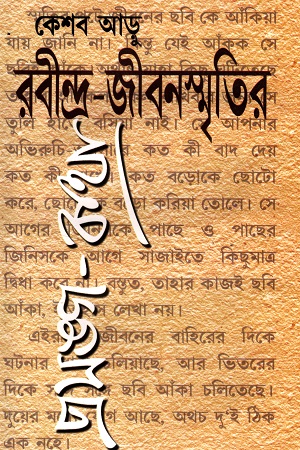 কেশব আড়ু
রবীন্দ্র-জীবনস্মৃতির
প্রসঙ্গ-কথা
জীবনের ছবি কে আঁকিয়া
যায় জানি না। যেই আঁকুক সে
তুলি হাতে বসিয়া নাই। সে আপনার
অভিরুচি কত কী বাদ দেয়
কত বড়োকে ছোটো
করে, করিয়া তোলে। সে
আগের পাছে ও পাছের
জিনিসকে আগে সাজাইতে কিছুমাত্র
দ্বিধা করে না। বস্তুত, তাহার কাজই ছবি
আঁকা, লেখা নয়।
এইরূপে জীবনের বাহিরের দিকে
ঘটনার চলিয়াছে, আর ভিতরের
দিকে ছবি আঁকা চলিতেছে।
দুয়ের মধ্যে যোগ আছে, অথচ দু'ই ঠিক
এক নহে।